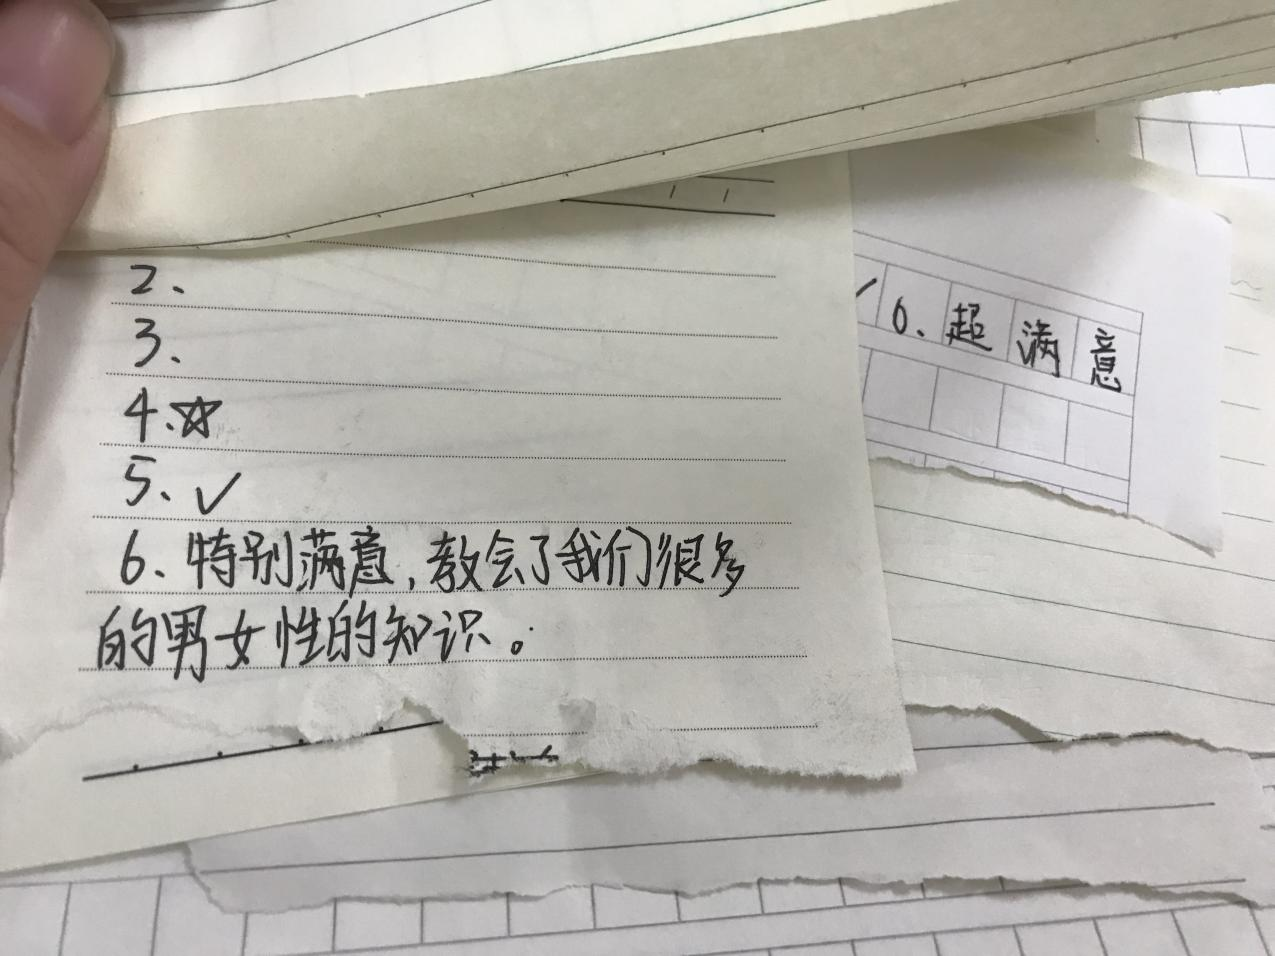 2、
3、
4、☆
5、✓
6、特别满意,教会了我们很多
的男女性的知识。
✓6、超满意